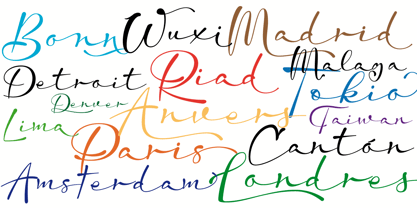 Bonn Wuxi Madrid
Detroit Riad Málaga
Denver Tokio
Lima Anvers Taiwan
Paris Cantón
Amsterdam Londres